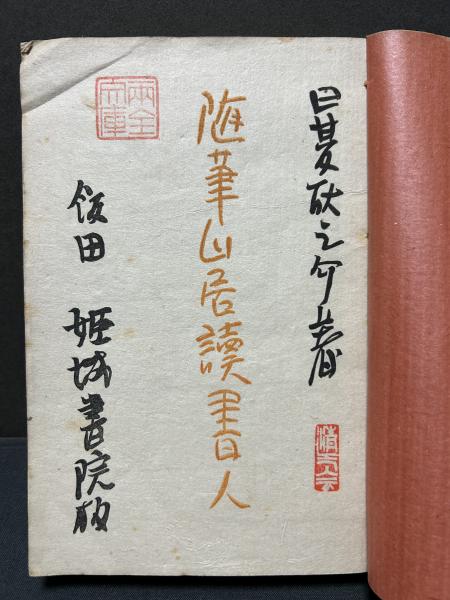 日夏耿之介著
随筆山居讀書人
飯田 姫城書院版
兩全文庫